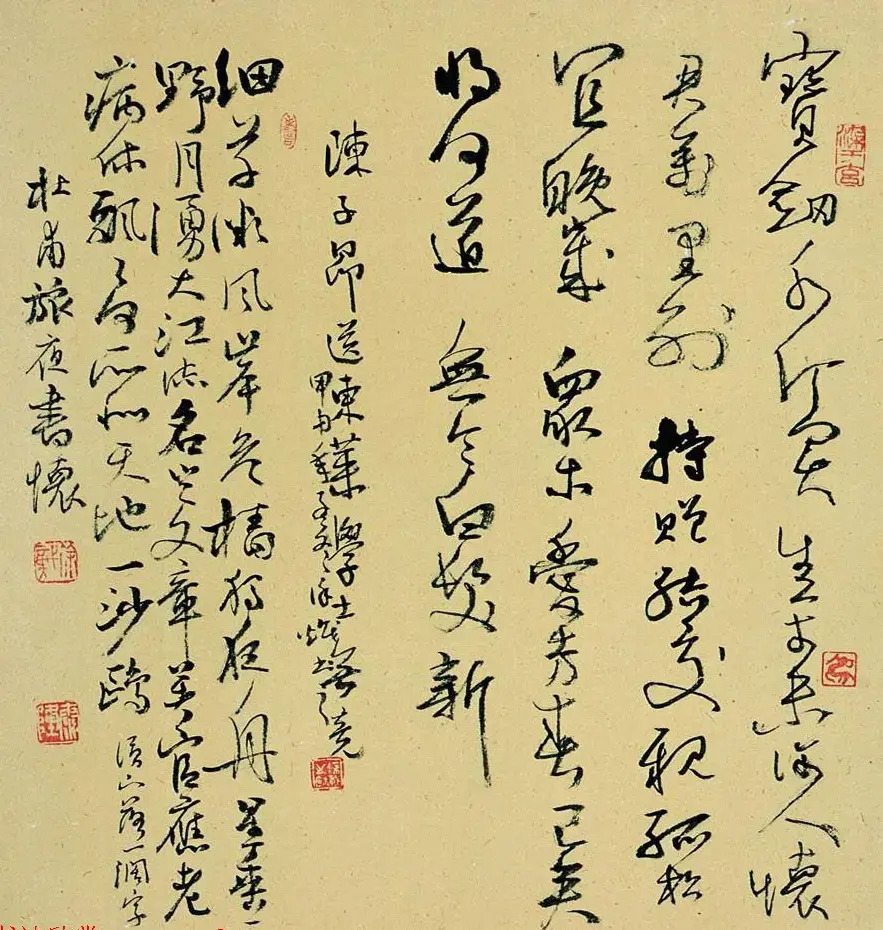 寶劍千金買生平未許人懷
君萬里別持贈結交親孤松
宜晚歲眾木愛芳春已矣
將何道無令白髮新
陳子昂送東萊學士無競
細草微風岸危檣獨夜舟星垂
野月湧大江流名豈文章著官應老
病休飄飄何所似天地一沙鷗
落一闊字
杜甫旅夜書懷